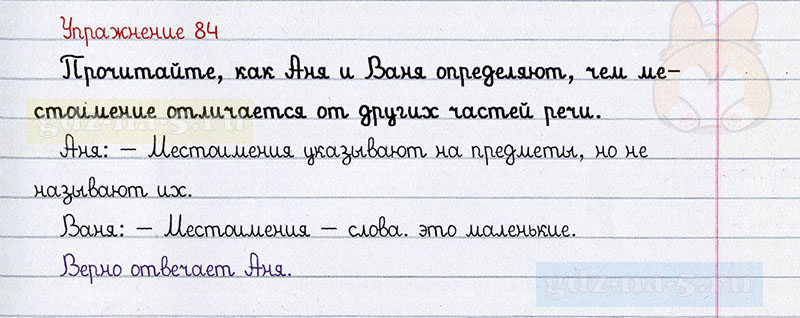 Упражнение 84
Прочитайте, как Аня и Ваня определяют, чем ме-
стоимение отличается от других частей речи.
Аня: – Местоимения указывают на предметы, но не
называют их.
Ваня: – Местоимения – слова. это маленькие.
Верно отвечает Аня.
gdz-na-5.ru
gdz-na-5.ru